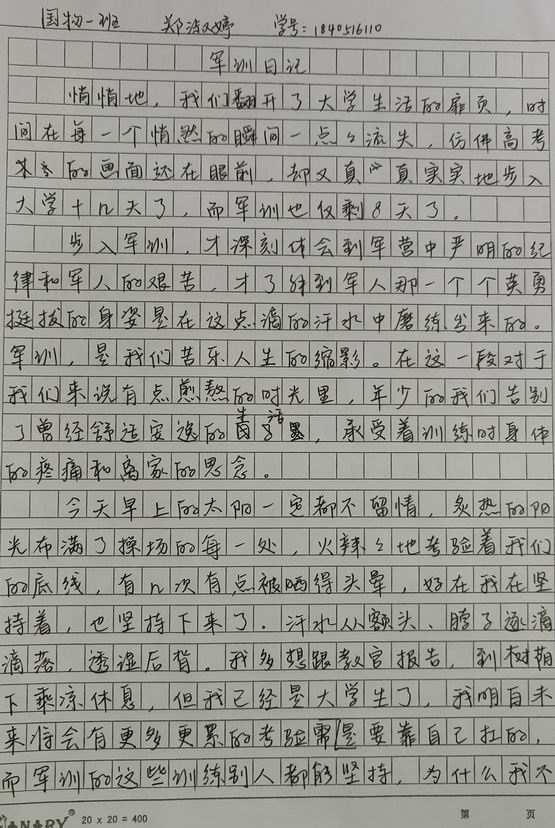 国物一班 郑汝婷 学号：1840516110
军训日记
悄悄地，我们翻开了大学生活的扉页，时
间在每一个悄然的瞬间一点々流失，仿佛高考
的画面还在眼前，却又真真实实地步入
大学十几天了，而军训也仅剩8天了。
步入军训，才深刻体会到军营中严明的纪
律和军人的艰苦，才了解到军人那一个个英勇
挺拔的身姿是在这点滴的汗水中磨练出来的。
军训，是我们苦乐人生的缩影。在这一段对于
我们来说有点煎熬的时光里，年少的我们告别
了曾经舒适安逸的生活，承受着训练时身体
的疼痛和离家的思念。
今天早上的太阳一定都不留情，炙热的阳
光布满了操场的每一处，火辣々地考验着我们
的底线，有几次有点被晒得头晕，好在我在坚
持着，也坚持下来了。汗水从额头、脖子逐滴
滴落，透湿后背。我多想跟教官报告，到树荫
下乘凉休息，但我已经是大学生了，我明白未
来将会有更多更累的考验需是要靠自己扛的，
而军训的这些训练别人都能坚持，为什么我不
ANARY® 20 x 20 = 400 第 页